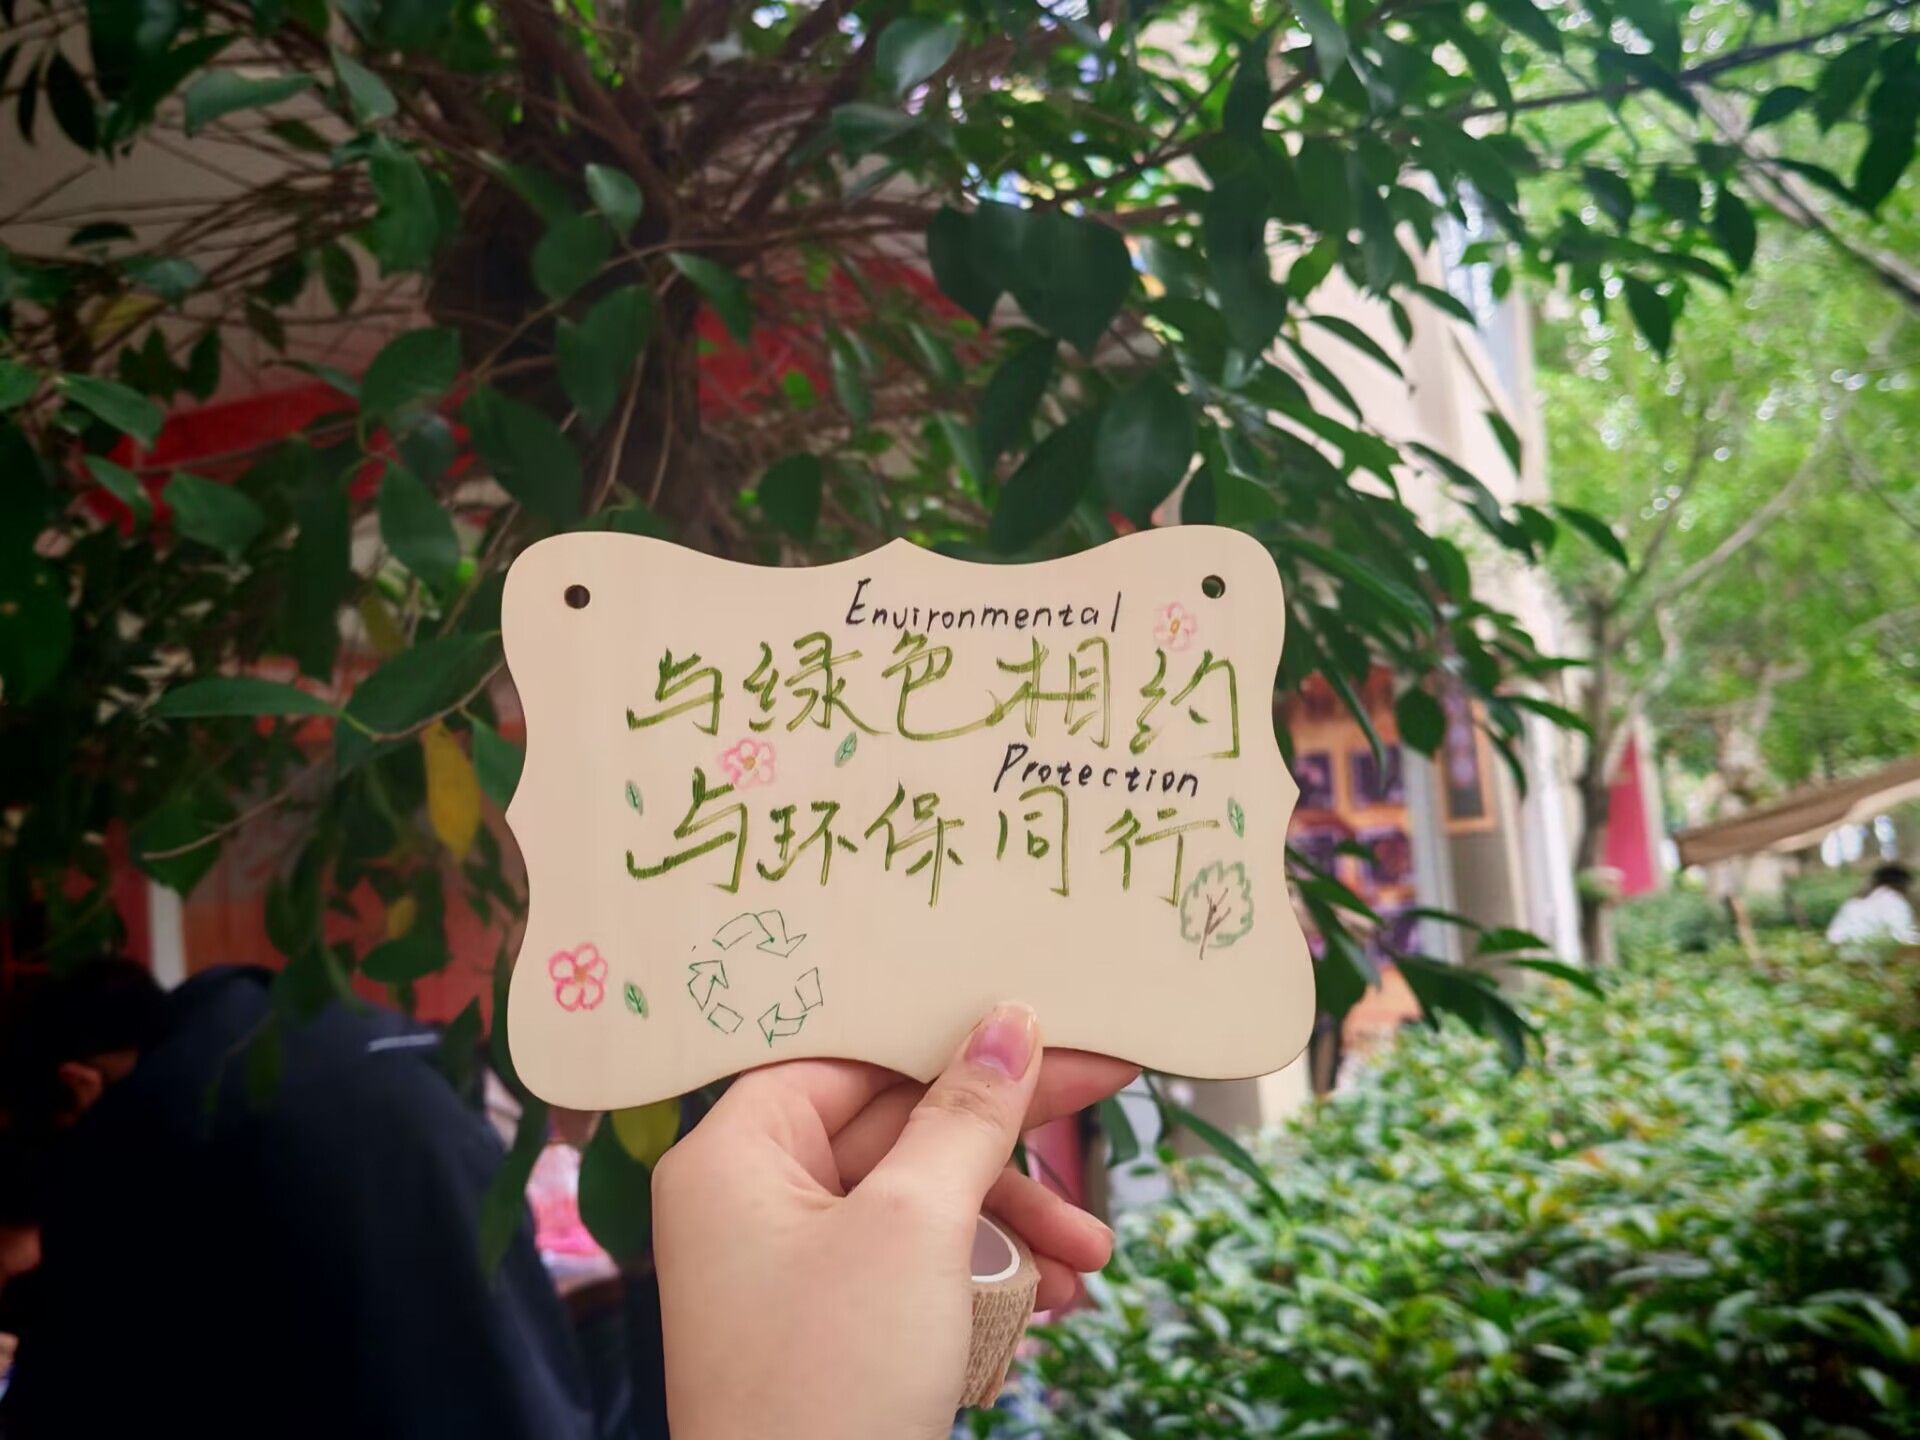 Environmental
与绿色相约
Protection
与环保同行